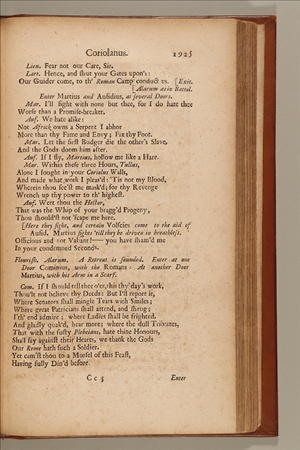 Coriolanus. 1925
Lieu. Fear not our Care, Sir.
Lart. Hence, and shut your Gates upon's:
Our Guider come, to th' Roman Camp conduct us. [Exit.
[Alarum as in Battel.
Enter Martius and Aufidius, at several Doors.
Mar. I'll fight with none but thee, for I do hate thee
Worse than a Promise-breaker.
Auf. We hate alike:
Not Africk owns a Serpent I abhor
More than thy Fame and Envy; Fix thy Foot.
Mar. Let the first Budger die the other's Slave,
And the Gods doom him after.
Auf. If I fly, Martius, hollow me like a Hare.
Mar. Within these three Hours, Tullus,
Alone I fought in your Coriolus Walls,
And made what work I pleas'd: 'Tis not my Blood,
Wherein thou see'st me mask'd; for thy Revenge
Wrench up thy power to th' highest.
Auf. Wert thou the Hector,
That was the Whip of your bragg'd Progeny,
Thou should'st not 'scape me here.
[Here they fight, and certain Volscies come to the aid of
Aufid. Martius fights 'till they be driven in breathless.
Officious and not Valiant!— you have sham'd me
In your condemned Seconds.
Flourish. Alarum. A Retreat is sounded. Enter at one
Door Cominius, with the Romans: At another Door
Martius, with his Arm in a Scarf.
Com. If I should tell thee o'er, this thy day's work,
Thou'lt not believe thy Deeds: But I'll report it,
Where Senators shall mingle Tears with Smiles;
Where great Patricians shall attend, and shrug;
I'th' end admire; where Ladies shall be frighted,
And gladly quak'd, hear more; where the dull Tribunes,
That with the fusty Plebeians, hate thine Honours,
Shall say against their Hearts, we thank the Gods
Our Rome hath such a Soldier.
Yet cam'st thou to a Morsel of this Feast,
Having fully Din'd before.
C c 3 Enter